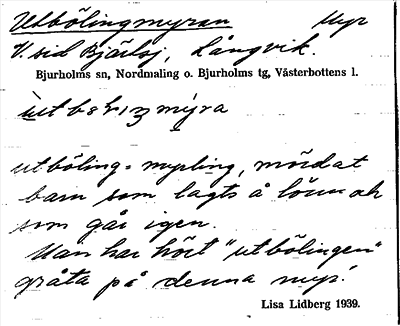 Utbölingmyran Myr
V. sid Bjärlsj, Långvik.
Bjurholms sn, Nordmaling o. Bjurholms tg, Västerbottens l.
utböling = myrling, mördat
barn som lagts å lönn och
som går igen.
Man har hört "utbölingen"
gråta på denna myr.
Lisa Lidberg 1939.